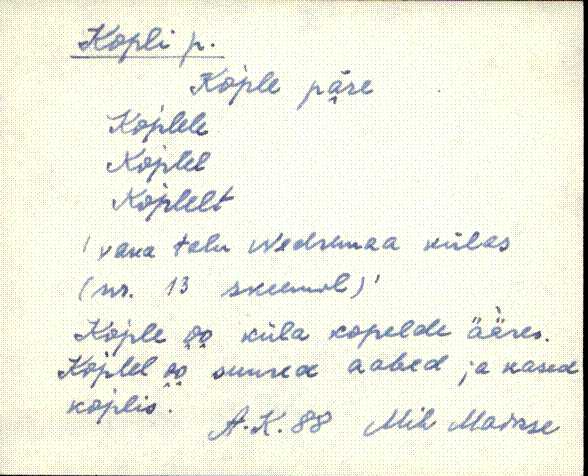 Kopli p.
Kople päre
Koplele
Koplel
Koplelt
'vana talu Wedruka külas
(nr. 13 skeemil)'
Kople o̬o̬ küla kopelde ääres.
Koplel o̬o̬ suured aabed ja kased
koplis.
A.K. 88 Mih